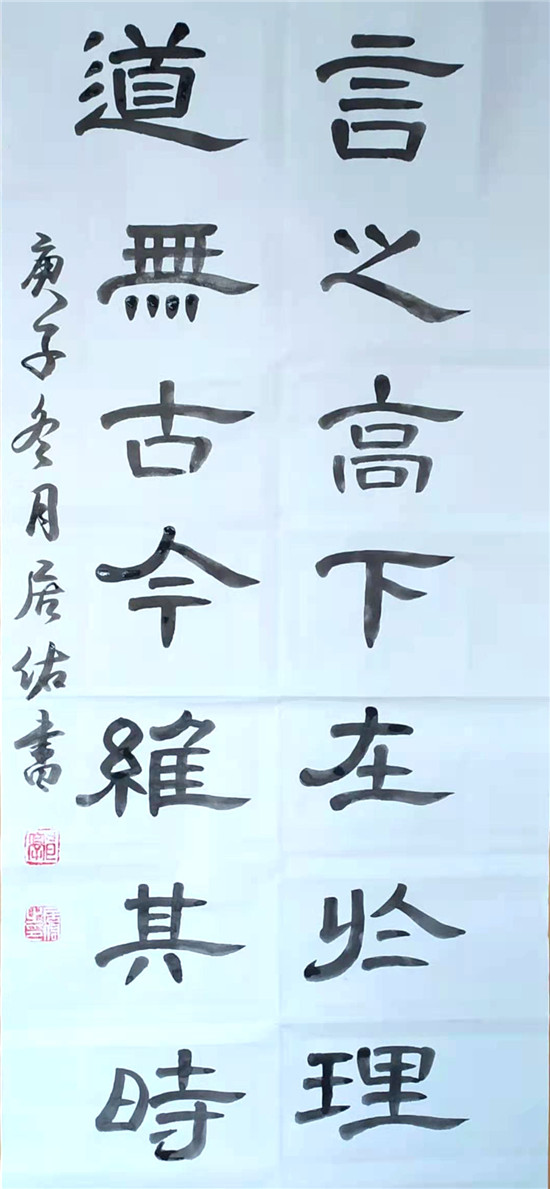 言之高下在於理
道無古今維其時
庚子冬月居佑書